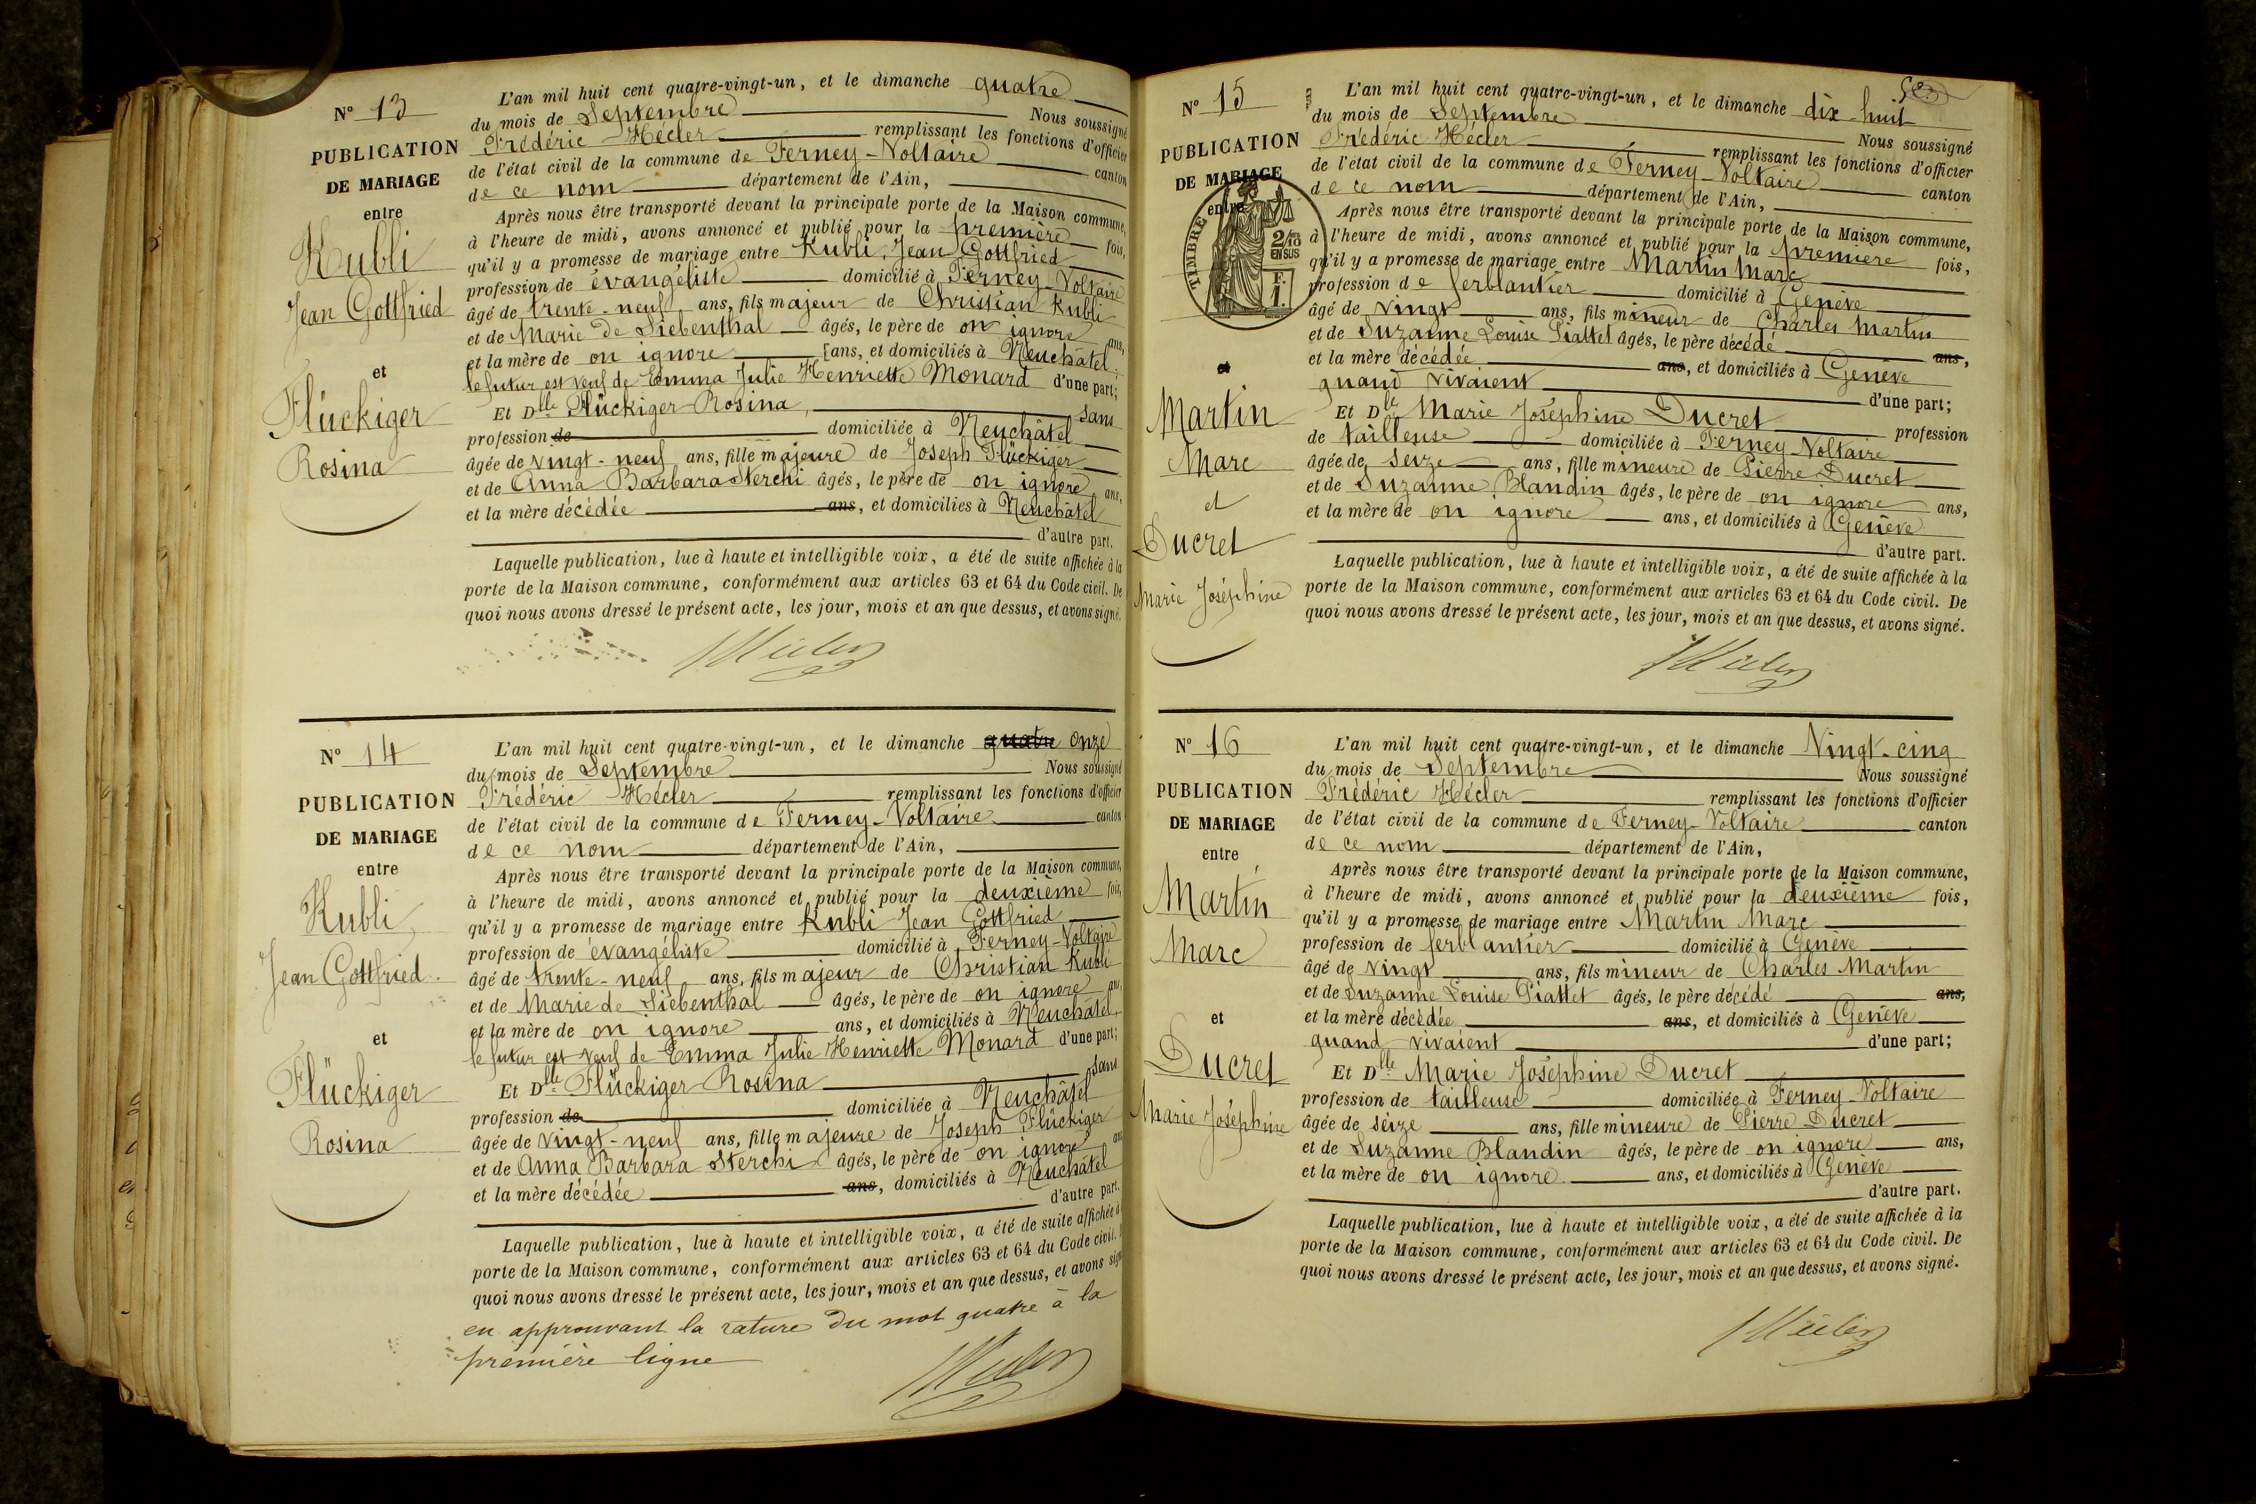 N° 13
PUBLICATION
DE MARIAGE
entre
Kubli
Jean Gottfried
et
Flückiger
Rosina
L'an mil huit cent quatre-vingt-un, et le dimanche quatre
du mois de Septembre Nous soussigné
Frédéric Hécler remplissant les fonctions d'officier
de l'état civil de la commune de Ferney-Voltaire canton
de ce nom département de l'Ain,
Après nous être transporté devant la principale porte de la Maison commune,
à l'heure de midi, avons annoncé et publié pour la première fois,
qu'il y a promesse de mariage entre Kubli, Jean Gottfried
profession de évangéliste domicilié à Ferney-Voltaire
âgé de trente-neuf ans, fils majeur de Christian Kubli
et de Marie de Siebenthal âgés, le père de on ignore ans,
et la mère de on ignore ans, et domiciliés à Neuchâtel.
le futur est veuf de Emma Julie Henriette Monard d'une part;
Et Dlle Flückiger Rosina, sans
profession de domiciliée à Neuchâtel
âgée de vingt-neuf ans, fille majeure de Joseph Flückiger
et de Anna Barbara Sterchi âgés, le père de on ignore ans,
et la mère décédée ans, et domiciliés à Neuchâtel
d'autre part.
Laquelle publication, lue à haute et intelligible voix, a été de suite affichée à la
porte de la Maison commune, conformément aux articles 63 et 64 du Code civil. De
quoi nous avons dressé le présent acte, les jour, mois et an que dessus, et avons signé.
N° 14
PUBLICATION
DE MARIAGE
entre
Kubli,
Jean Gottfried.
et
Flückiger
Rosina
L'an mil huit cent quatre-vingt-un, et le dimanche quatre onze
du mois de Septembre Nous soussigné
Frédéric Hécler remplissant les fonctions d'officier
de l'état civil de la commune de Ferney-Voltaire canton
de ce nom département de l'Ain,
Après nous être transporté devant la principale porte de la Maison commune,
à l'heure de midi, avons annoncé et publié pour la deuxième fois,
qu'il y a promesse de mariage entre Kubli Jean Gottfried
profession de évangéliste domicilié à Ferney-Voltaire
âgé de trente-neuf ans, fils majeur de Christian Kubli
et de Marie de Siebenthal âgés, le père de on ignore ans,
et la mère de on ignore ans, et domiciliés à Neuchâtel,
le futur est veuf de Emma Julie Henriette Monard d'une part;
Et Dlle Flückiger Rosina sans
profession de domiciliée à Neuchâtel
âgée de vingt-neuf ans, fille majeure de Joseph Flückiger
et de Anna Barbara Sterchi âgés, le père de on ignore ans
et la mère décédée ans, domiciliés à Neuchâtel
d'autre part.
Laquelle publication, lue à haute et intelligible voix, a été de suite affichée à
porte de la Maison commune, conformément aux articles 63 et 64 du Code civil.
quoi nous avons dressé le présent acte, les jour, mois et an que dessus, et avons signé
en approuvant la rature du mot quatre à la
première ligne
N° 15
PUBLICATION
DE MARIAGE
entre
TIMBRE
2/10
EN SUS
F.
1.
et
Martin
Marc
et
Ducret
Marie Joséphine
L'an mil huit cent quatre-vingt-un, et le dimanche dix-huit
du mois de Septembre Nous soussigné
Frédéric Hécler remplissant les fonctions d'officier
de l'état civil de la commune de Ferney-Voltaire canton
de ce nom département de l'Ain,
Après nous être transporté devant la principale porte de la Maison commune,
à l'heure de midi, avons annoncé et publié pour la première fois,
qu'il y a promesse de mariage entre Martin Marc
profession de ferblantier domicilié à Genève
âgé de vingt ans, fils mineur de Charles Martin
et de Suzanne Louise Piattet âgés, le père décédé ans,
et la mère décédée ans, et domiciliés à Genève
quand vivaient d'une part;
Et Dlle Marie Joséphine Ducret profession
de tailleuse domiciliée à Ferney-Voltaire
âgée de seize ans, fille mineure de Pierre Ducret
et de Suzanne Blandin âgés, le père de on ignore ans,
et la mère de on ignore ans, et domiciliés à Genève
d'autre part.
Laquelle publication, lue à haute et intelligible voix, a été de suite affichée à la
porte de la Maison commune, conformément aux articles 63 et 64 du Code civil. De
quoi nous avons dressé le présent acte, les jour, mois et an que dessus, et avons signé.
N° 16
PUBLICATION
DE MARIAGE
entre
Martin
Marc
et
Ducret
Marie Joséphine
L'an mil huit cent quatre-vingt-un, et le dimanche Vingt-cinq
du mois de Septembre Nous soussigné
Frédéric Hécler remplissant les fonctions d'officier
de l'état civil de la commune de Ferney-Voltaire canton
de ce nom département de l'Ain,
Après nous être transporté devant la principale porte de la Maison commune,
à l'heure de midi, avons annoncé et publié pour la deuxième fois,
qu'il y a promesse de mariage entre Martin Marc
profession de ferblantier domicilié à Genève
âgé de vingt ans, fils mineur de Charles Martin
et de Suzanne Louise Piattet âgés, le père décédé ans,
et la mère décédée ans, et domiciliés à Genève
quand vivaient d'une part;
Et Dlle Marie Joséphine Ducret
profession de tailleuse domiciliée à Ferney-Voltaire
âgée de seize ans, fille mineure de Pierre Ducret
et de Suzanne Blandin âgés, le père de on ignore ans,
et la mère de on ignore. ans, et domiciliés à Genève
d'autre part.
Laquelle publication, lue à haute et intelligible voix, a été de suite affichée à la
porte de la Maison commune, conformément aux articles 63 et 64 du Code civil. De
quoi nous avons dressé le présent acte, les jour, mois et an que dessus, et avons signé.